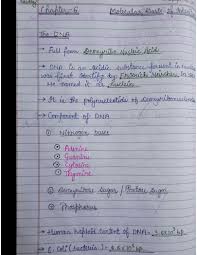 Chapter-6 Molecular Basis of
The DNA
→ Full form Deoxyribo Nucleic Acid
→ DNA is an acidic substance present in
was first identify by Friedrich Meischer in
He named it as Nuclein
→ It is the polynucleotide of deoxyribonucleo
→ Component of DNA
① Nitrogen base
Adenine
Guanine
Cytosine
Thymine
② Deoxyribose Sugar / Pentose Sugar
③ Phosphorus
→ Human haploid content of DNA = 3.3x10⁹ bp
→ E. Coli (bacteria) = 4.6x10⁶ bp